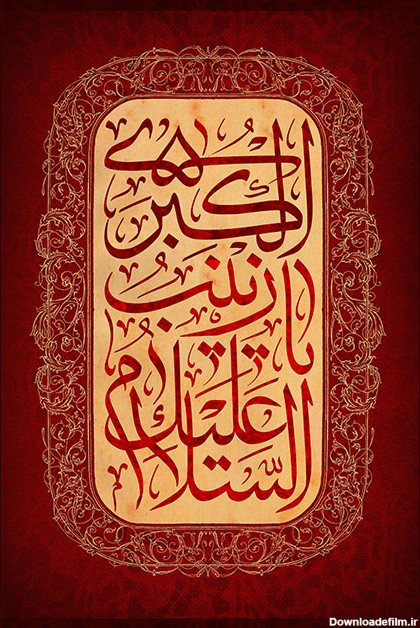 السّلام عليك
يا زينب
الكبرى
Downloadefilm.ir